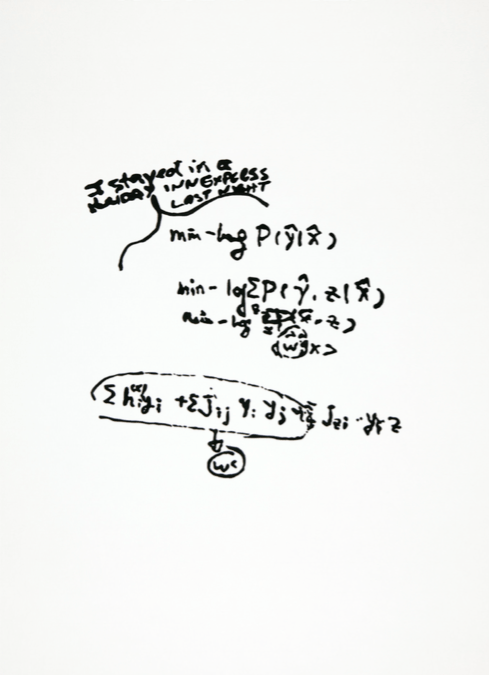 I stayed in a
HOLIDAY INN EXPRESS
LAST NIGHT
min -log P(ŷ|x̂)
min - log Σ P(ŷ, z|x̂)
min -log
w x>
Σ h y_i + Σ J_ij y_i y_j + J_zi y_i z
w^c